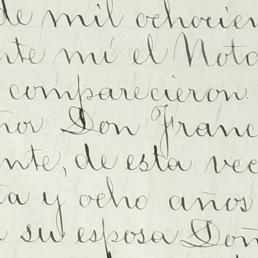 de mil ochocien
nte mí el Nota
comparecieron
ñor Don Franc
ente, de esta vec
ta y ocho años
a su esposa Doñ